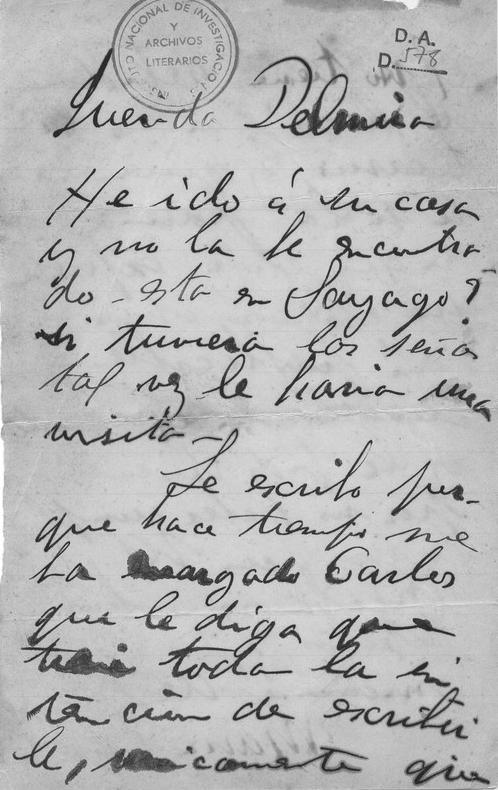 INSTITUTO NACIONAL DE INVESTIGACIONES
Y
ARCHIVOS
LITERARIOS
D. A.
D. 578
Querida Delmira
He ido á su casa
y no la he encontra
do - esta en Sayago?
si tuviera las señas
tal vez le haria una
visita -
Le escribo por-
que hace tiempo me
ha encargado Carlos
que le diga que
tiene toda la in
tención de escribir
le, unicamente que